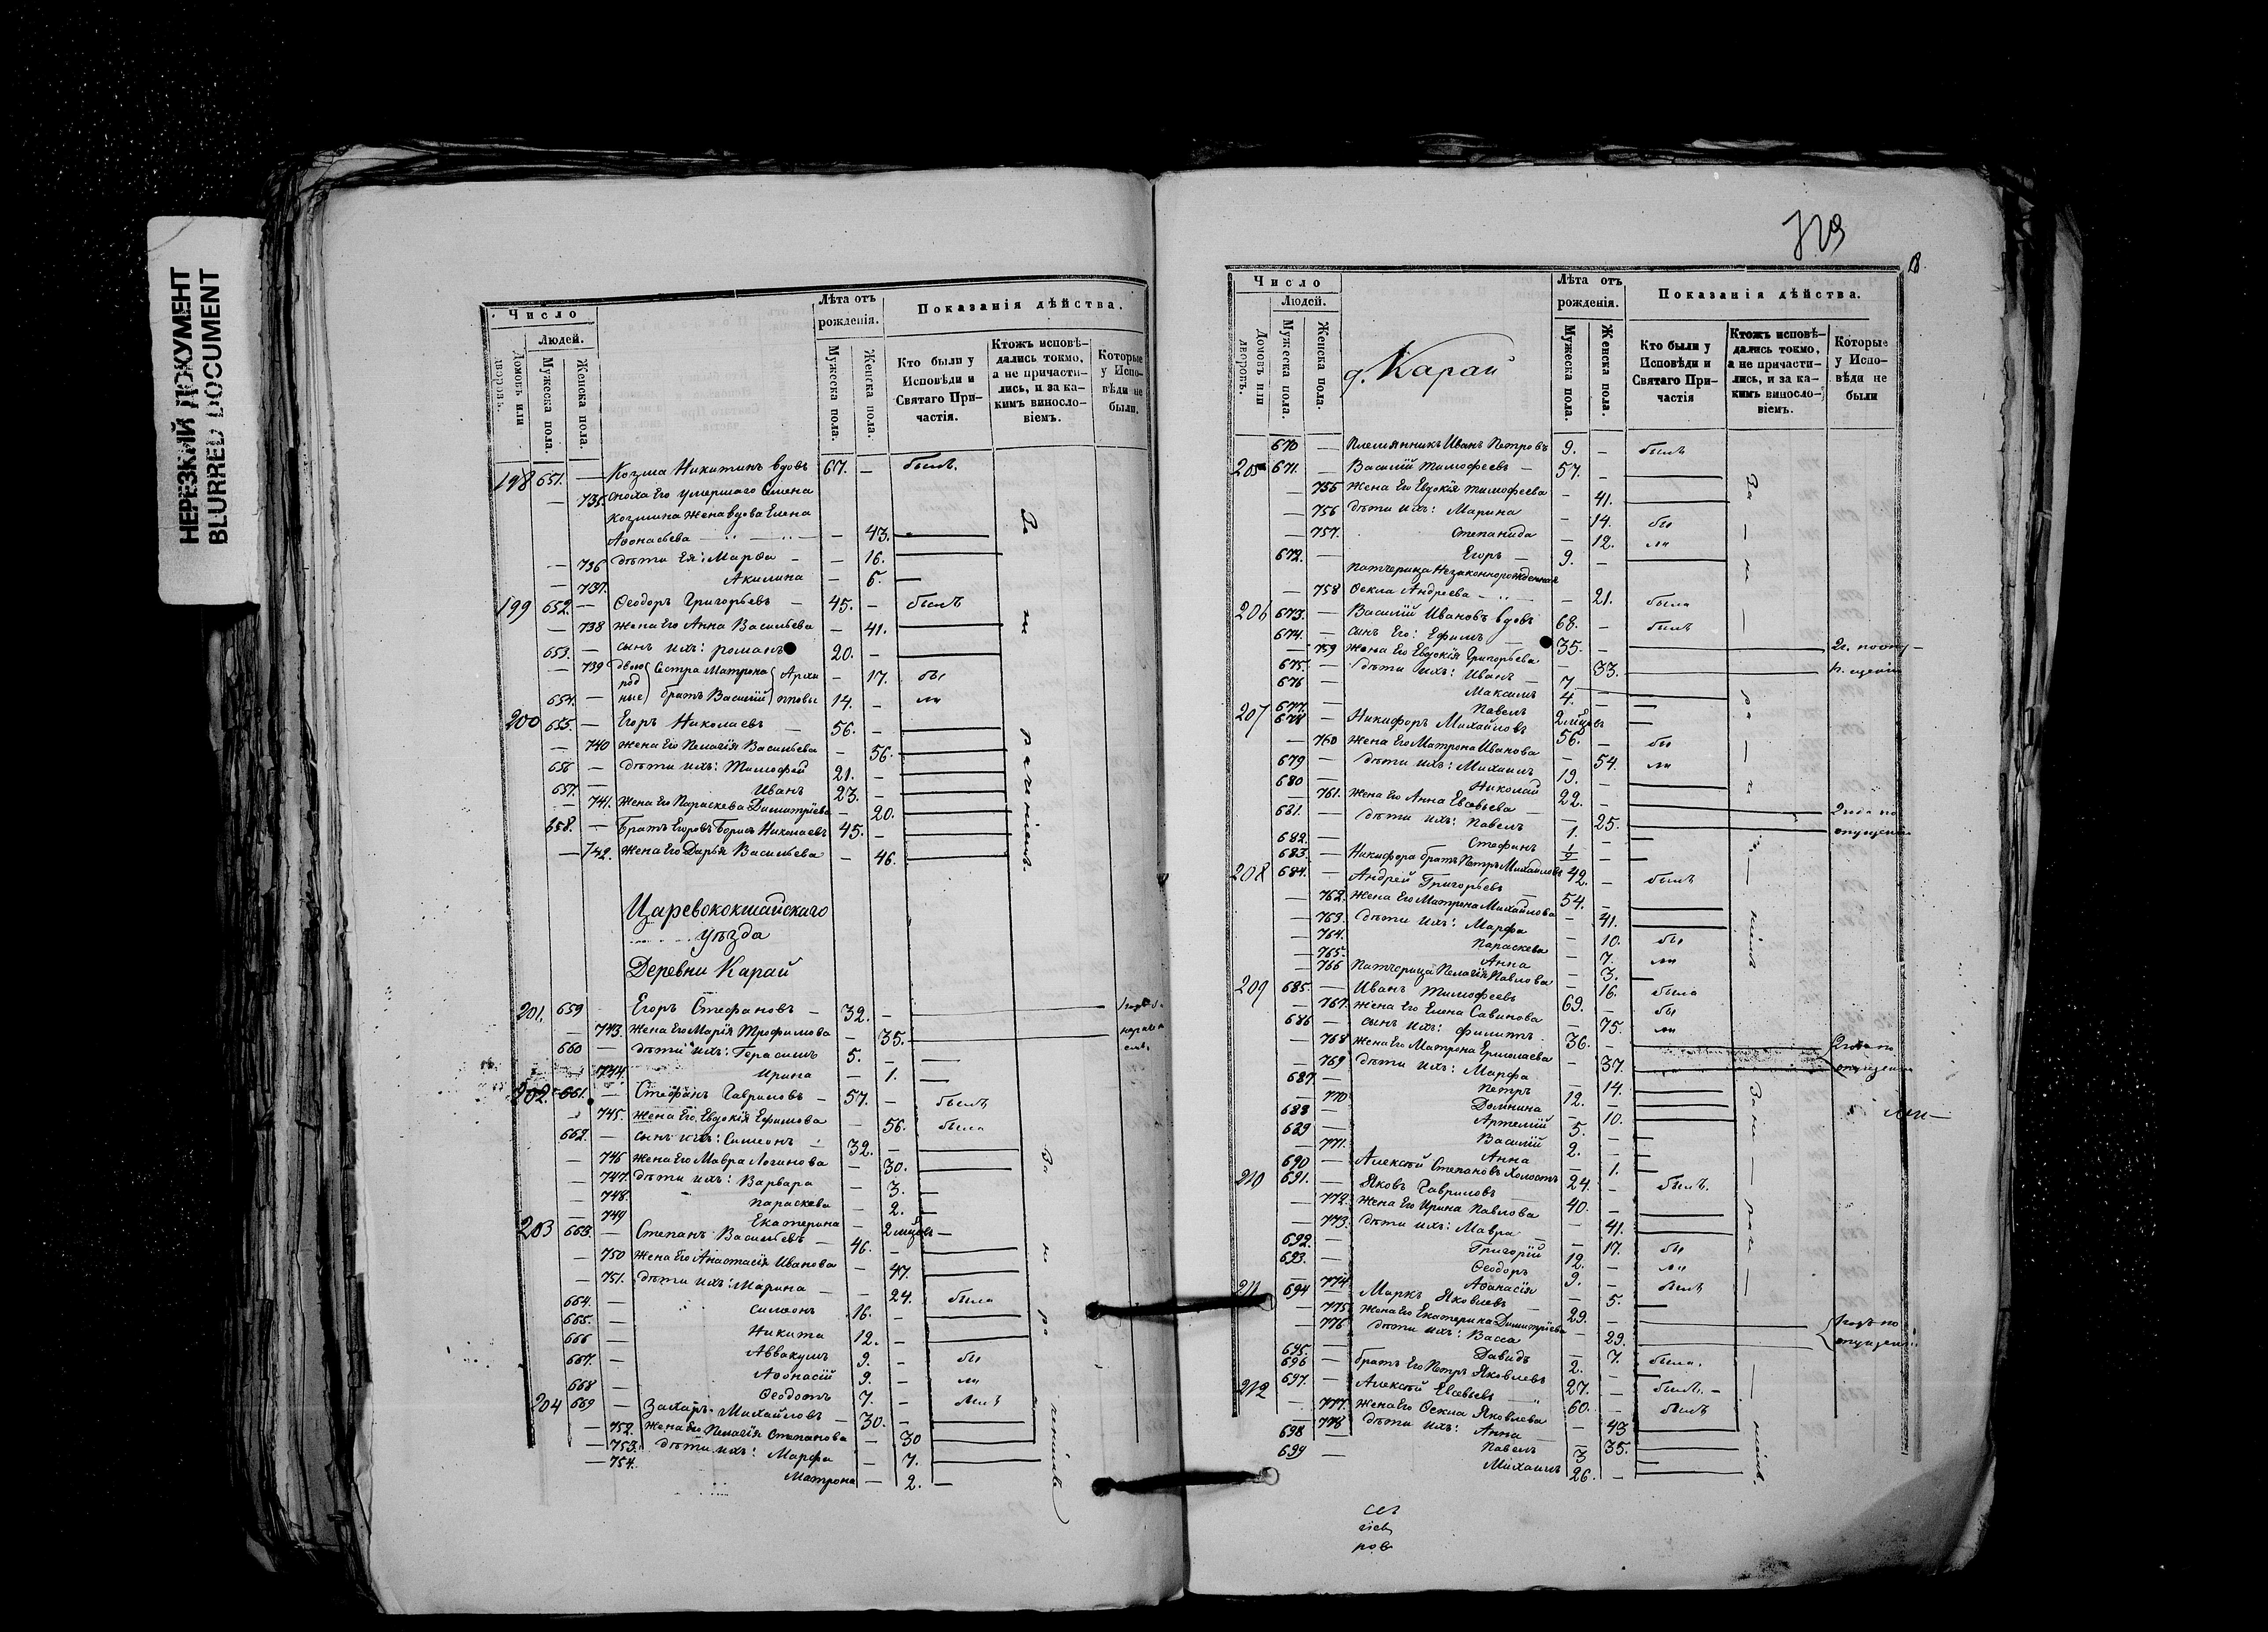 НЕРЕЗКИЙ ДОКУМЕНТ
BLURRED DOCUMENT
Число
Людей.
Домовъ или дворовъ.
Мужеска пола.
Женска пола.
Лѣта отъ рожденія.
Мужеска пола.
Женска пола.
Показанія дѣйства.
Кто были у Исповѣди и Святаго Причастія.
Ктожъ исповѣдались токмо, а не причастились, и за какимъ винословіемъ.
Которые у Исповѣди не были.
198 651. — Козма Никитинъ вдовъ 67. — былъ.
— 735 сноха Его умершаго Семена
Козмина жена вдова Елена
Аѳонасьева — 43.
— 736 дѣти Ея: Марѳа — 16.
— 737. Акилина — 6.
199 652. — Ѳеодоръ Григорьевъ — 45. — былъ
— 738 жена Его Анна Васильева — 41.
653. — сынъ ихъ: романъ 20. —
— 739 двоюродные сестра Матрона Архиповы — 17. бы
654. — братъ Василій 14. — ли
200 655. — Егоръ Николаевъ 56. —
— 740 жена Его Пелагія Васильева — 56.
656 — дѣти ихъ: Тимофей 21. —
657. — Иванъ 23. —
— 741. жена Его Параскева Димитріева — 20.
658. — Братъ Егоровъ Борисъ Николаевъ 45. —
— 742. жена Его Дарья Васильева — 46.
За не раченіемъ.
Царевококшайскаго
уѣзда
Деревни Карай
201. 659 Егоръ Стефановъ — 32. —
— 743. жена Его Марія Трофимова — 35.
660 — дѣти ихъ: Герасимъ 5. —
— 744. Ирина — 1.
202. 661. — Стефанъ Гавриловъ — 57. — былъ
— 745. жена Его Евдокія Ефимова — 56. была
662. — сынъ ихъ: Симеонъ 32. —
— 746 жена Его Мавра Логинова — 30.
— 747. дѣти ихъ: Варвара — 3.
— 748. Параскева — 2.
— 749 Екатерина — 2 мѣцовъ
203 663. — Степанъ Васильевъ — 46. —
— 750 жена Его Анастасія Иванова — 47.
— 751. дѣти ихъ: Марина — 24. была
664. — Симеонъ 16. —
665. — Никита 12. —
666 — Аввакумъ 9. — бы
667. — Аѳонасій 9. — ли
668 — Ѳеодотъ 7. —
204 669 — Захаръ Михайловъ — 30. —
— 752. жена Его Пелагія Степанова — 30
— 753. дѣти ихъ: Марфа — 7.
— 754. Матрона — 2. —
За не ра ченіемъ
729
Число
Людей.
Домовъ или дворовъ.
Мужеска пола.
Женска пола.
д. Карай
Лѣта отъ рожденія.
Мужеска пола.
Женска пола.
Показанія дѣйства.
Кто были у Исповѣди и Святаго Причастія
Ктожъ исповѣдались токмо, а не причастились, и за какимъ винословіемъ.
Которые у Исповѣди не были
670 — Племянникъ Иванъ Петровъ 9. — былъ
205 671. — Василій Тимофеевъ — 57. —
— 755 жена Его Евдокія Тимофеева — 41.
— 756 дѣти ихъ: Марина — 14. бы
— 757. Степанида — 12. ли
672. — Егоръ — 9. —
Патчерица Незаконнорожденная
— 758 Ѳекла Андреева — 21. была
206 673. — Василій Ивановъ вдовъ 68. — былъ
674. — сынъ Его: Ефимъ — 35. —
— 759 жена Его Евдокія Григорьева — 33.
675. — дѣти ихъ: Иванъ — 7
676 — Максимъ 4. —
677. — Павелъ 2 мѣцовъ
207 678 — Никифоръ Михайловъ 56. — бы
— 760 жена Его Матрона Иванова — 54. ли
679 — дѣти ихъ: Михаилъ 19. —
680 — Николай 22. —
— 761. жена Его Анна Евсевьева — 25.
681. — дѣти ихъ: Павелъ 1. —
682. Стефанъ ½ —
683. — Никифора братъ Петръ Михайловъ 42. — былъ
208 684. — Андрей Григорьевъ — 54. —
— 762. жена Его Матрона Михайлова — 41.
— 763. дѣти ихъ: Марфа — 10. бы
— 764. Параскева — 7. ли
— 765. Анна — 3.
— 766 Патчерица Пелагія Павлова — 16. была
209 685. — Иванъ Тимофеевъ 69. — бы
— 767. жена Его Елена Савинова — 75. ли
686 — сынъ ихъ: Филиппъ 36. —
— 768 жена Его Матрона Ермолаева — 37.
— 769 дѣти ихъ: Марфа — 14.
687. — Петръ 12. —
— 770 Домнина — 10.
688 — Артемій 5. —
689 — Василій 2. —
— 771. Анна — 1.
690 — Алексѣй Степановъ холостъ 24. — былъ.
210 691. — Яковъ Гавриловъ 40. —
— 772. жена Его Ирина Павлова — 41.
— 773. дѣти ихъ: Мавра — 17. бы
692. — Григорій 12. — ли
693. — Ѳеодоръ 9. — былъ
— 774 Аѳанасія — 5.
211 694 — Маркъ Яковлевъ 29. —
— 775 жена Его Екатерина Димитріева — 29.
— 776 дѣти ихъ: Васса — 7. была.
695. — Давидъ 2. —
696 — братъ Его Петръ Яковлевъ 27. — былъ. —
212 697. — Алексѣй Евсевьевъ 60. — былъ
— 777. жена Его Ѳекла Яковлева — 43
— 778 дѣти ихъ: Анна — 35.
698 — Павелъ 3
699 — Михаилъ 26. —